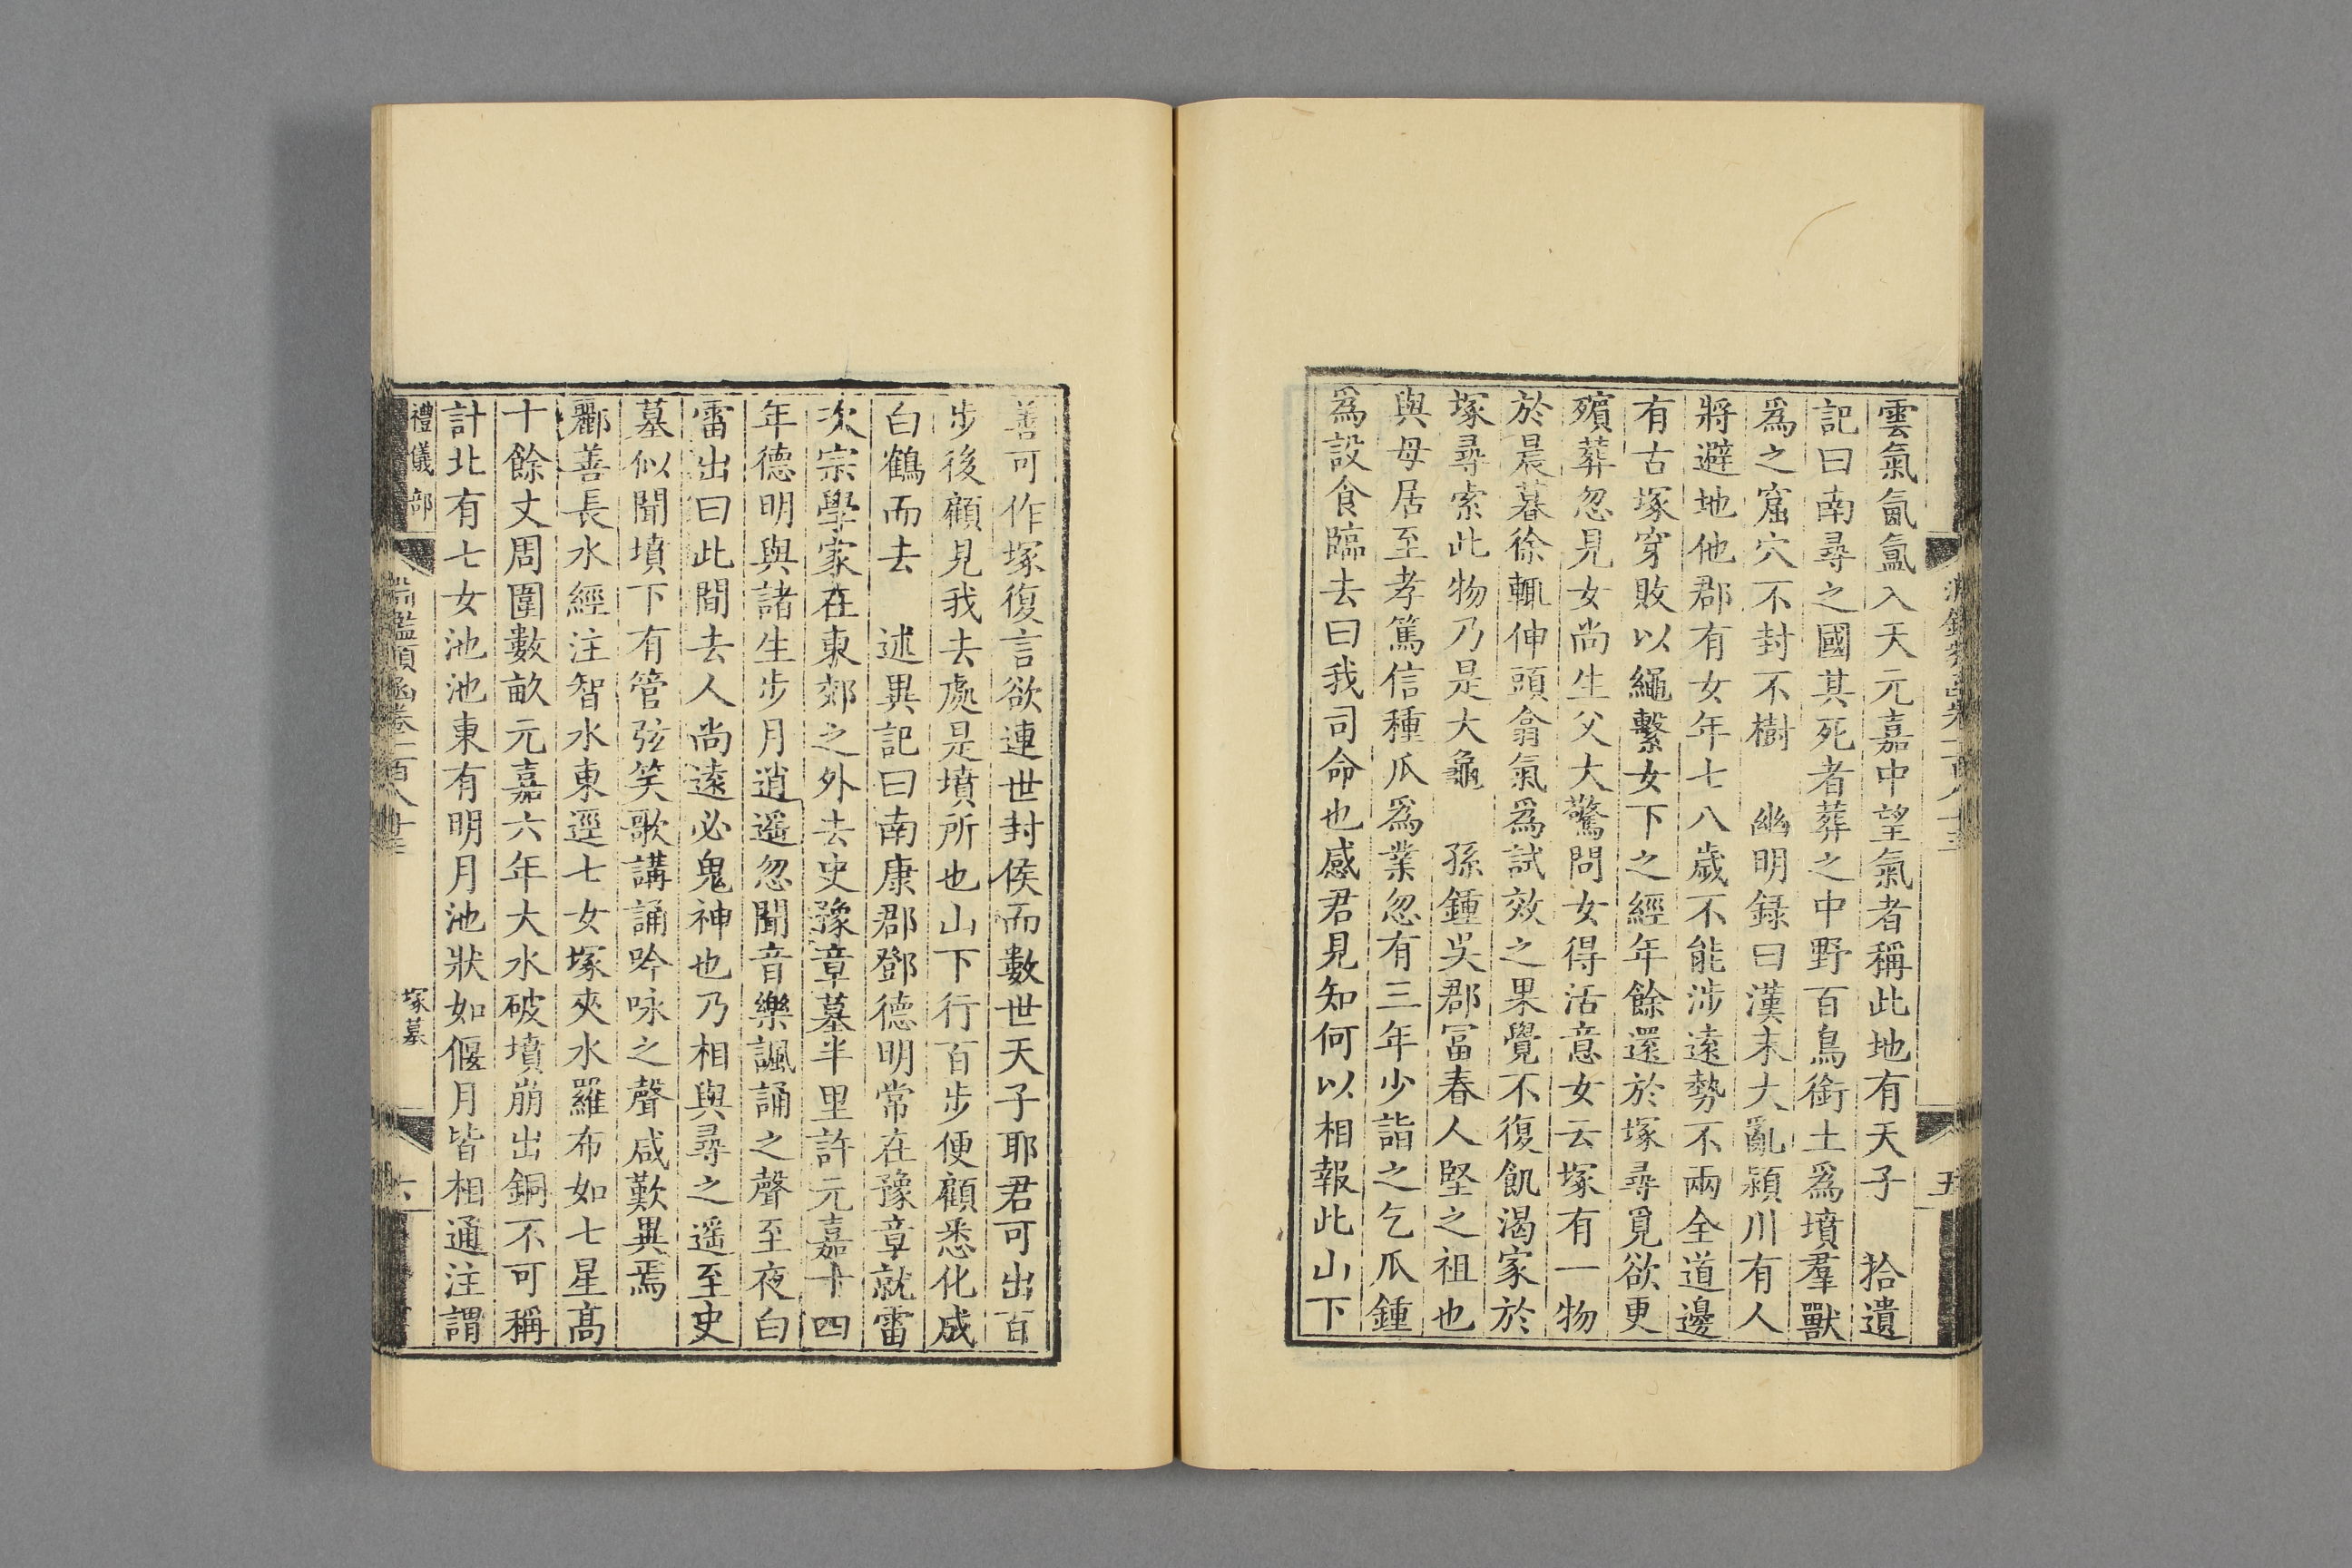 雲氣氤氳入天元嘉中望氣者稱此地有天子　拾遺
記曰南尋之國其死者葬之中野百鳥銜土爲墳羣獸
爲之窟穴不封不樹　幽明録曰漢末大亂潁川有人
將避地他郡有女年七八歲不能涉遠勢不兩全道邊
有古塚穿敗以繩繫女下之經年餘還於塚尋覓欲更
殯葬忽見女尚生父大驚問女得活意女云塚有一物
於晨暮徐輒伸頭翕氣爲試效之果覺不復飢渴家於
塚尋索此物乃是大龜　孫鍾吳郡冨春人堅之祖也
與母居至孝篤信種瓜爲業忽有三年少詣之乞瓜鍾
爲設食臨去曰我司命也感君見知何以相報此山下
五
善可作塚復言欲連世封侯而數世天子耶君可出百
步後顧見我去處是墳所也山下行百步便顧悉化成
白鶴而去　述異記曰南康郡鄧德明常在豫章就雷
次宗學家在東郊之外去史豫章墓半里許元嘉十四
年德明與諸生步月逍遥忽聞音樂諷誦之聲至夜白
雷出曰此間去人尚遠必鬼神也乃相與尋之遥至史
墓似聞墳下有管弦笑歌講誦吟咏之聲咸歎異焉
酈善長水經注智水東逕七女塚夾水羅布如七星髙
十餘丈周圍數畝元嘉六年大水破墳崩出銅不可稱
計北有七女池池東有明月池狀如偃月皆相通注謂
禮儀部
塚墓
六